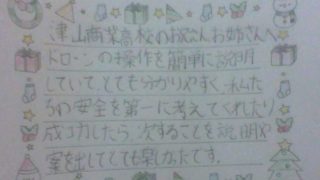 津山商業高校のお兄さんお姉さんへ
ドローンの操作を簡単に説明
していて、とても分かりやすく、私た
ちの安全を第一に考えてくれたり
成功したら、次することを説明や
案を出してとても楽しかったです。